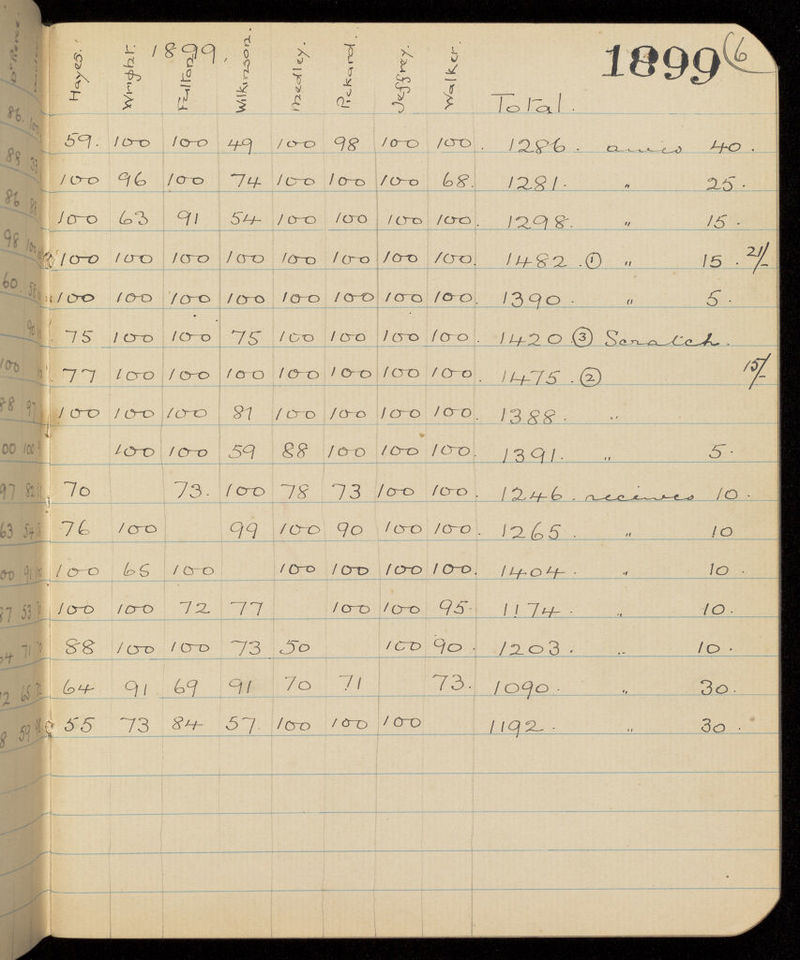 1899. 1899 (6
Hayes. Wright. Fulton. Wilkinson. Medley. Pickard. Jeffrey. Walker. Total.
59. 100 100 49 100 98 100 100. 1286. owes 40.
100 96 100 74 100 100 100 68. 1281. " 25.
100 63 91 54 100 100 100 100. 1298. " 15.
100 100 100 100 100 100 100 100. 1482. ① " 15. 21/-
100 100 100 100 100 100 100 100. 1390. " 5.
75 100 100 75 100 100 100 100. 1420 ③ Scratch.
77 100 100 100 100 100 100 100. 1475. ② 15/-
100 100 100 81 100 100 100 100. 1388. "
100 100 59 88 100 100 100. 1391. " 5.
70 73. 100 78 73 100 100. 1246. receives 10.
76 100 99 100 90 100 100. 1265. " 10
100 65 100 100 100 100 100. 1404. " 10.
100 100 72 77 100 100 95. 1174. " 10.
88 100 100 73 50 100 90. 1203. " 10.
64 91 69 91 70 71 73. 1090. " 30.
55 73 84 57. 100 100 100 1192. " 30.